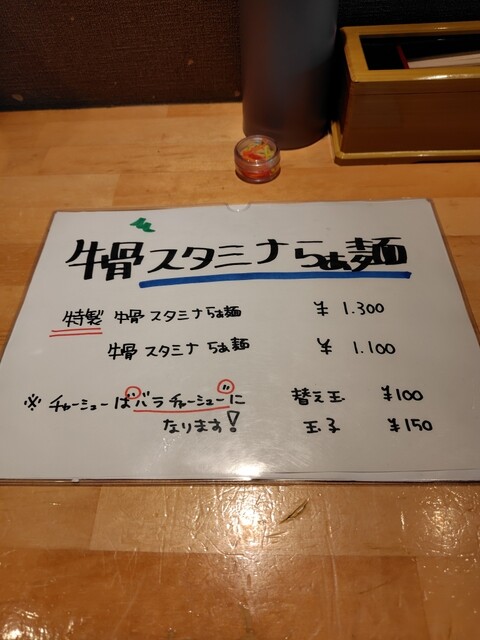 牛骨スタミナらぁ麺
特製 牛骨 スタミナらぁ麺 ¥ 1.300
牛骨 スタミナ らぁ麺 ¥ 1.100
※ チャーシューは"バラチャーシュー"に
なります!
替え玉 ¥100
玉子 ¥150